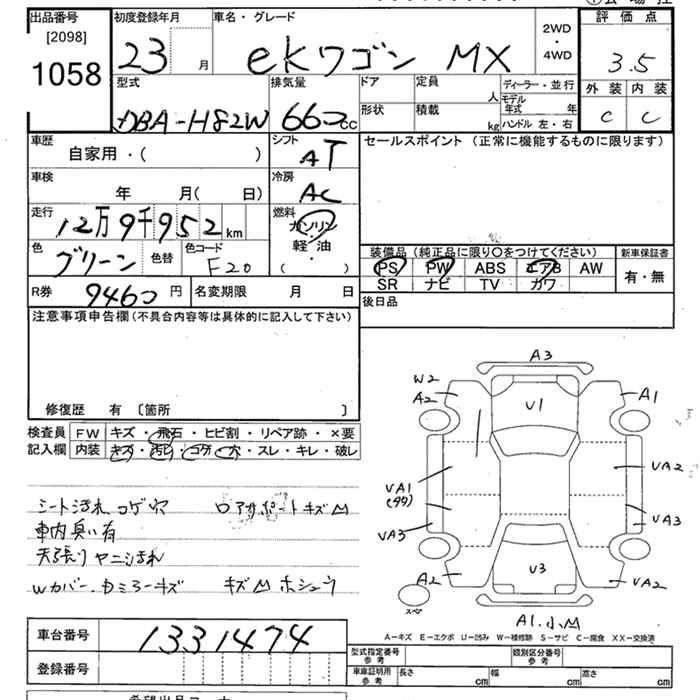 出品番号 初度登録年月 車名・グレード 評価点
[2098] 1058
23 月 eKワゴン MX 2WD・4WD 3.5
型式 排気量 ドア 定員 人 ディーラー・並行 外装 内装
DBA-H82W 660 cc 形状 積載 kg モデル年式 年 ハンドル 左・右 C C
車歴 自家用・( ) シフト AT セールスポイント (正常に機能するものに限ります)
車検 年 月( 日) 冷房 AC
走行 12万9千952 km 燃料 ガソリン・軽油・( )
色 グリーン 色替 色コード F20
装備品 (純正品に限り〇をつけてください) 新車保証書
PS PW ABS エアB AW 有・無
SR ナビ TV カワ
R券 9460 円 名変期限 月 日 後日品
注意事項申告欄 (不具合内容等は具体的に記入して下さい)
修復歴 有 〔箇所 〕
検査員 FW キズ・飛石・ヒビ割・リペア跡・×要
記入欄 内装 キズ・汚れ・コゲ・穴・スレ・キレ・破レ
シート汚れ コゲ穴
車内臭い有
天張り ヤニ汚れ
キズ
A3
W2
A2
U1
A1
VA1
VA2
VA3
VA3
A2
U3
VA2
スペア
A1.小
A-キズ E-エクボ U-凹み W-補修跡 S-サビ C-腐食 XX-交換済
車台番号 1331474
登録番号
型式指定番号 参考 類別区分番号 参考
車庫証明用 参考 長さ cm 幅 cm 高さ cm